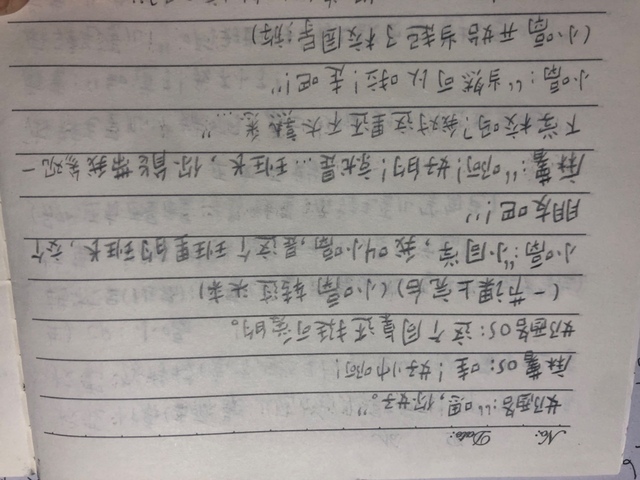 No.
Date.
奶酪："嗯，你好。"
麻薯OS：哇！好小啊！
奶酪OS：这个同桌还挺可爱的。
（一节课上完后）（小葡转过头来）
小葡："小同学，我叫小葡，是这个班里的班长，交个
朋友吧！"
麻薯："啊！好的！就是…班长，你能带我参观一
下学校吗？我对这里还不太熟悉…"
小葡："当然可以啦！走吧！"
（小葡开始当起了校园导游）